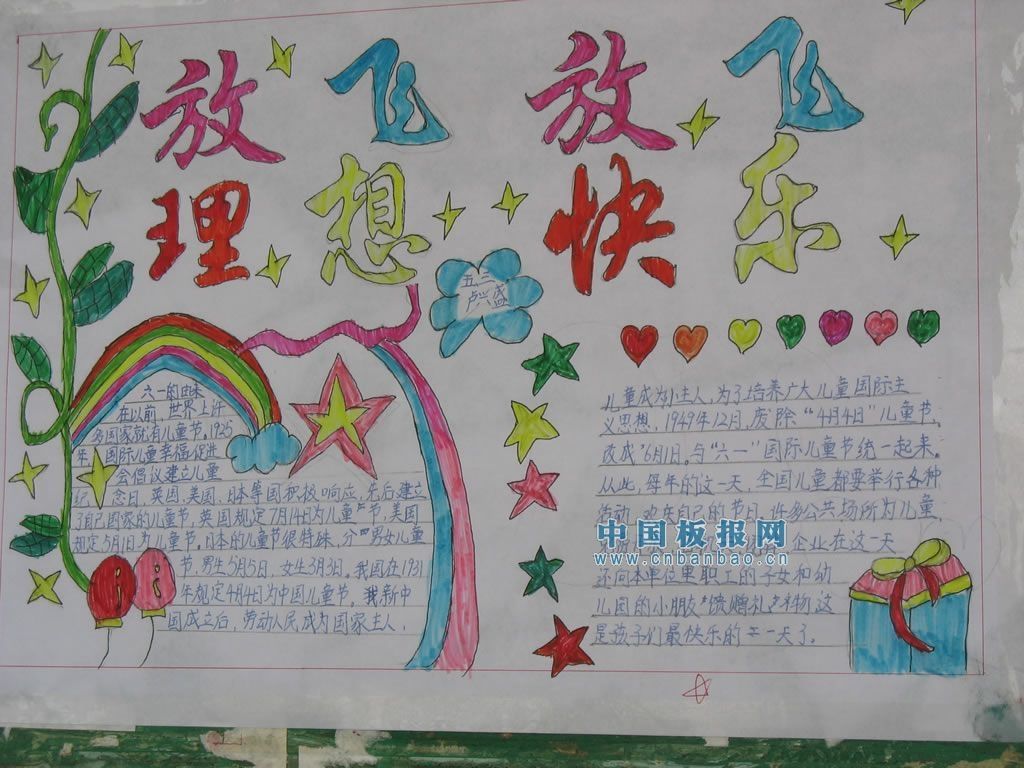 放飞 放飞
理想 快乐
五三
卢兴盛
六一的由来
在以前,世界上许
多国家就有儿童节。1925
年,国际儿童幸福促进
会倡议建立儿童
纪念日,英国、美国、日本等国积极响应,先后建立
了自己国家的儿童节,英国规定7月14日为儿童节,美国
规定5月1日为儿童节。日本的儿童节很特殊,分男女儿童
节,男生5月5日,女生3月3日。我国在1931
年规定4月4日为中国儿童节。我新中
国成立后,劳动人民成为国家主人,
儿童成为小主人,为了培养广大儿童国际主
义思想,1949年12月,废除“4月4日”儿童节,
改成6月1日。与“六一”国际儿童节统一起来。
从此,每年的这一天,全国儿童都要举行各种
活动,欢庆自己的节日。许多公共场所为儿童
企业在这一天
还向本单位里职工的子女和幼
儿园的小朋友馈赠礼物,这
是孩子们最快乐的一天了。
中国板报网
www.cnbanbao.cn